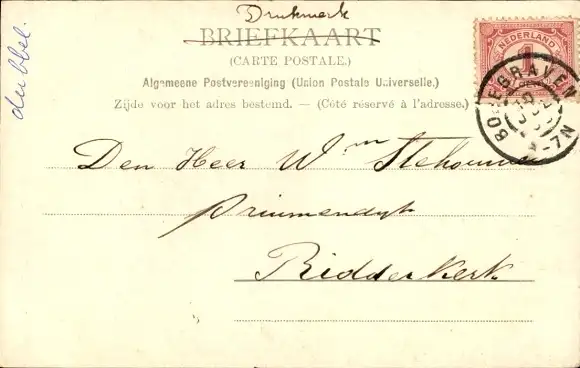 Drukwerk
BRIEFKAART
(CARTE POSTALE.)
Algemeene Postvereeniging (Union Postale Universelle.)
Zijde voor het adres bestemd. — (Côté réservé à l'adresse.)
dubbel.
NEDERLAND
1
BODEGRAVEN
Den Heer Wm Stehouwer
Pruimendijk
Ridderkerk